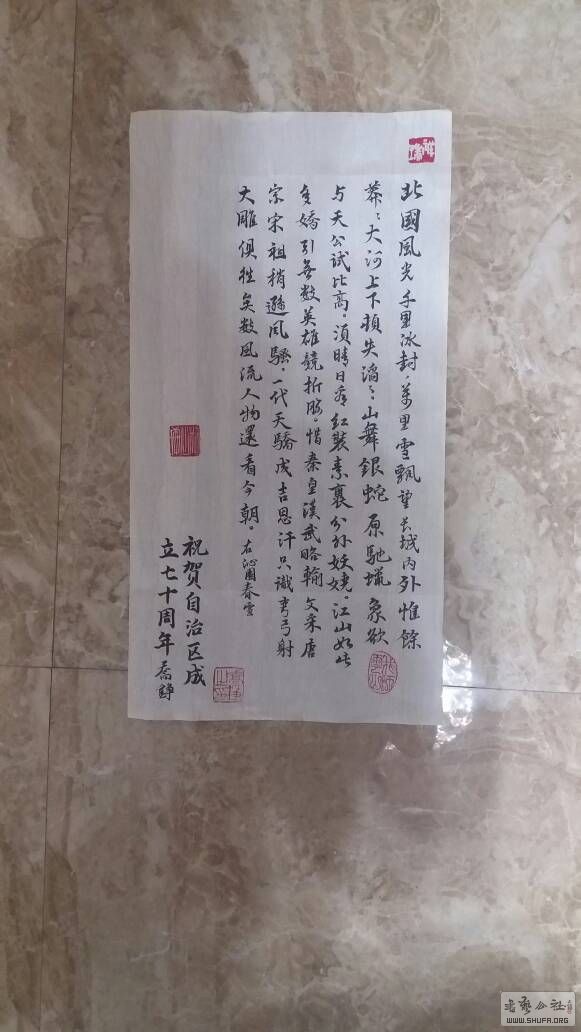 北國風光千里冰封，萬里雪飄望长城内外惟馀
莽々大河上下頓失滔々山舞銀蛇原馳蠟象欲
与天公试比高。須晴日看红装素裹分外妖娆。江山如此
多嬌引無数英雄競折腰。惜秦皇漢武略输文采唐
宗宋祖稍遜风騷。一代天驕成吉思汗只識弯弓射
大雕俱往矣数風流人物還看今朝。右沁園春雪
祝賀自治区成
立七十周年
书艺公社
WWW.SHUFA.ORG